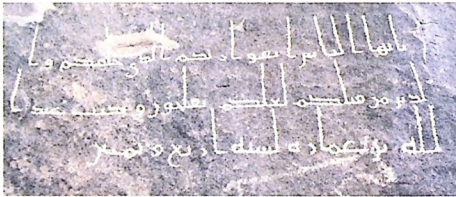 يايها الناس اتقوا ربكم الذي خلقكم وا
لذين من قبلكم لعلكم تفلحون وكتب عبدا
لله بن عماره لسنه اربع وثمنين